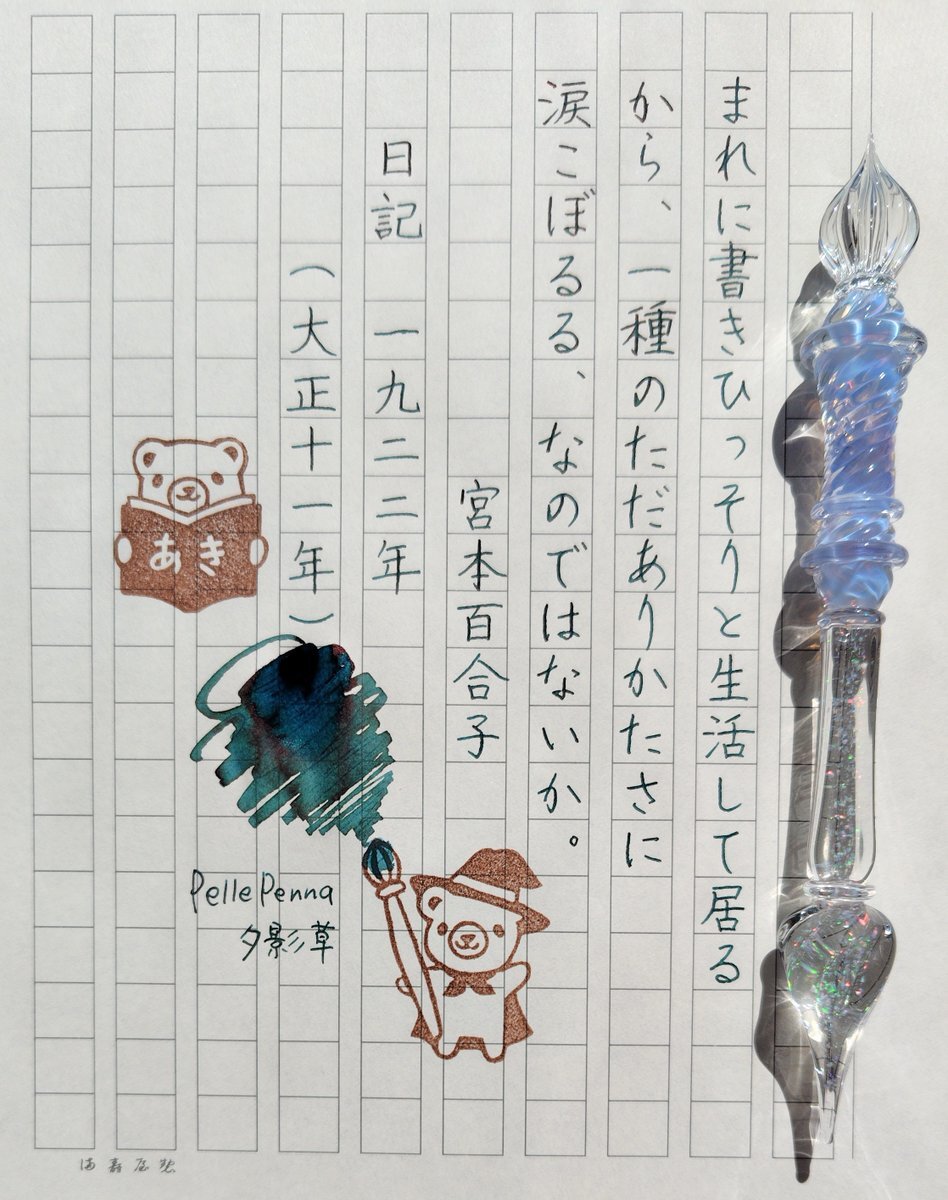 まれに書きひっそりと生活して居る
から、一種のただありかたさに
涙こぼるる、なのではないか。
宮本百合子
日記 一九二二年
（大正十一年）
あき
Pelle Penna
夕影草